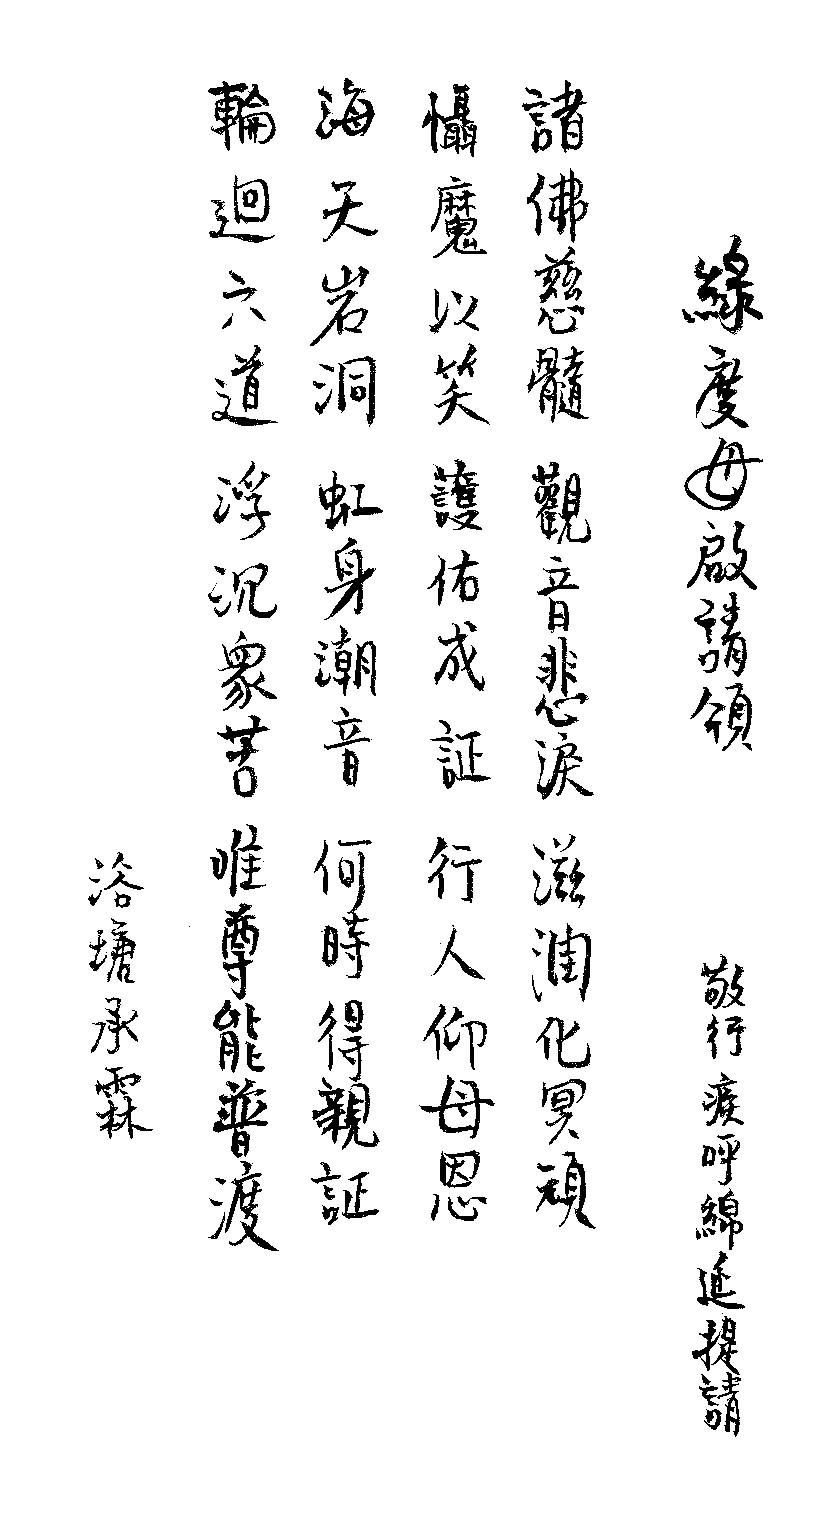 綠度母啟請頌
敬行疾呼綿延提請
諸佛慈髓 觀音悲淚 滋潤化冥頑
懾魔以笑 護佑成証 行人仰母恩
海天岩洞 虹身潮音 何時得親証
輪迴六道 浮沉眾苦 唯尊能普渡
浴塘承霖